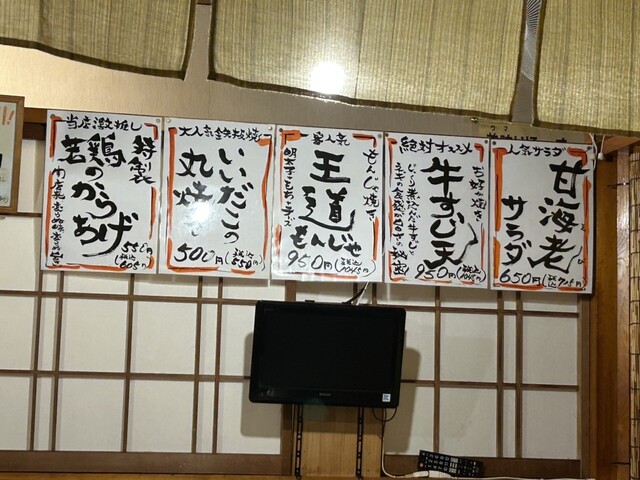 人気サラダ
甘海老
サラダ
650円(税込715円)
絶対オススメ
お好み焼き
牛すじ天
950円(税込1045円)
もんじゃ焼き
王道
もんじゃ
明太子ともちとチーズ
950円(税込1045円)
大人気鉄板焼
いいだこの
丸焼き
500円(税込550円)
当店激推し
特製
若鶏
のからあげ
550円
税込605円